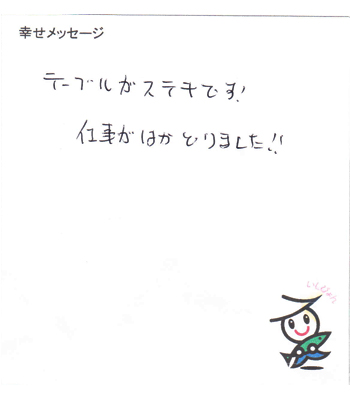 幸せメッセージ
テーブルがステキです!
仕事がはかどりました!!